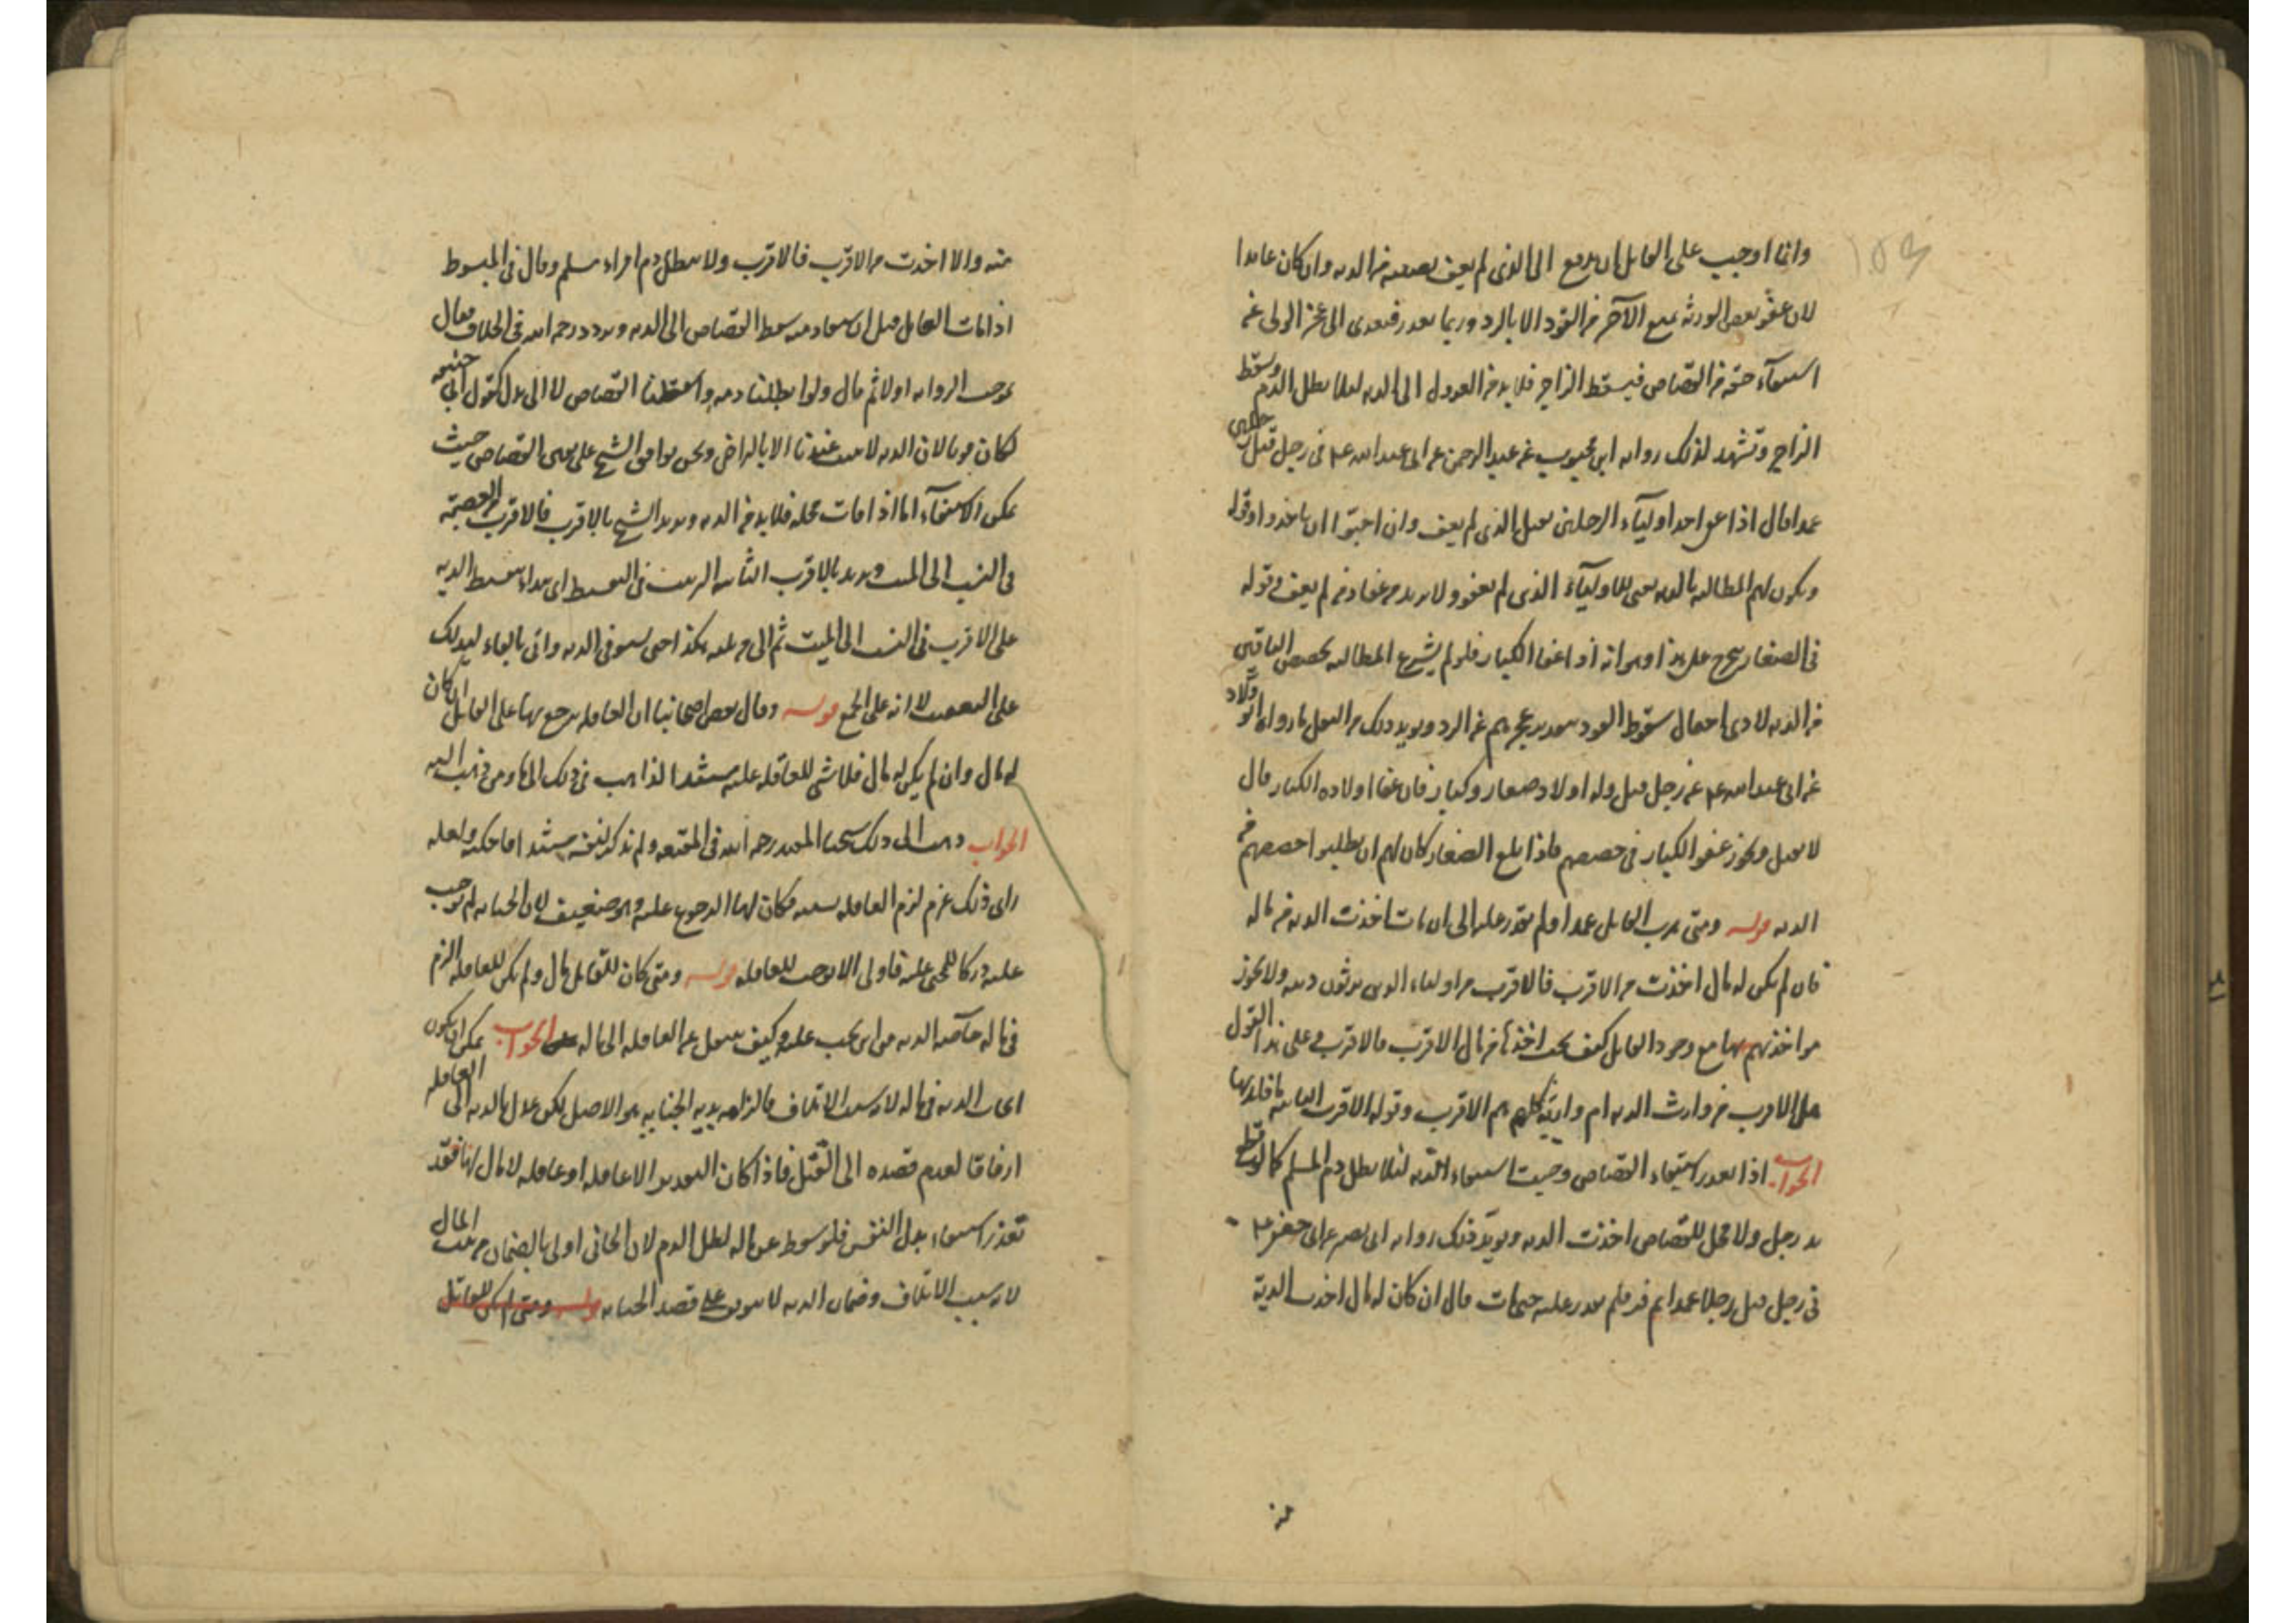 وانما اوجب على القاتل ان يدفع الى الذى لم يعف نصيبه من الديه وان كان عامدا
لان عفو بعض الورثه يمنع الآخر من القود الا بالرد وربما تعذر فيؤدى الى عجز الولى عن
استيفآء حقه من القصاص فيسقط الزاجر فلا بد من العدول الى الديه لئلا يطل الدم ويسقط
الزاجر وتشهد لذلك روايه ابن محبوب عن عبد الرحمن عن ابى عبد الله ع فى رجل قتل رجلين
عمدا قال اذا عفى احد اوليآء الرجلين يقتل الذى لم يعف وان احبوا ان ياخذوا وقوله
ويكون لهم المطالبه بالديه يعنى للاوليآء الذى لم يعفو ولا يريد من عفا ومن لم يعف وقوله
فى الصغار يخرج على هذا وهو انه اذا عفا الكبار فلو لم يشرع المطالبه بحصص الباقين
من الديه لادى احتمال سقوط القود بتقدير عجزهم عن الرد ويويد ذلك من النقل ما رواه ابو ولاد
عن ابى عبد الله ع عن رجل قتل وله اولاد صغار وكبار فان عفا اولاده الكبار قال
لا يقتل ويجوز عفو الكبار فى حصصهم فاذا بلغ الصغار كان لهم ان يطلبوا حصصهم من
الديه قوله ومتى هرب القاتل عمدا ولم يقدر عليه الى ان مات اخذت الديه من ماله
فان لم يكن له مال اخذت من الاقرب فالاقرب من اولياء الذين يرثون ديته ولا يجوز
مواخذتهم بها مع وجود القاتل كيف يجب اخذها من مال الاقرب فالاقرب وعلى هذا القول
هل الاقرب من وارث الديه ام وارثيه كلهم هم الاقرب وقوله الاقرب الثانيه ما فايدتها
الجواب اذا تعذر استيفاء القصاص وجبت استيفاء الديه لئلا يطل دم المسلم كما لو قطع
يد رجل ولا محل للقصاص اخذت الديه ويويد ذلك روايه ابى بصير عن ابى جعفر ع
فى رجل قتل رجلا عمدا ثم فر فلم يقدر عليه حتى مات قال ان كان له مال اخذت الدية
منه
منه والا اخذت من الاقرب فالاقرب ولا يبطل دم امراء مسلم وقال فى المبسوط
اذا مات القاتل قبل ان يستقاد منه سقط القصاص الى الديه وتردد رحمه الله فى الخلاف فقال
بموجب الروايه اولا ثم قال ولو ابطلنا دمه واسقطنا القصاص لا الى بدل كقول ابى حنيفه
لكان قويا لان الديه لا تثبت عندنا الا بالتراضى ونحن نوافق الشيخ على تعين القصاص حيث
يمكن الاستيفآء اما اذا مات محله فلا بد من الديه ويريد الشيخ بالاقرب فالاقرب من العصبة
فى النسب الى الميت ويريد بالاقرب الثانيه الترتيب فى التقسيط اى يبداء بتقسيط الديه
على الاقرب فى النسب الى الميت ثم الى من يليه هكذا حتى يستوفى الديه واتى بالفاء ليدلك
على التعقيب لا انه على الجمع قوله وقال بعض اصحابنا ان العاقله ترجع بها على القاتل ان كان
له مال وان لم يكن له مال فلا شئ للعاقله عليه مستند الذاهب فى ذلك الى ما ومن ذهب اليه
الجواب ذهب الى ذلك شيخنا المفيد رحمه الله فى المقنعه ولم نذكر لنفسه مستندا ما حكيته ولعله
راى ذلك غرم لزم العاقله بسببه فكان لها الرجوع عليه وهو ضعيف لان الجنايه لم توجب
عليه دركا للمجنى عليه فاولى الا توجب للعاقله قوله ومتى كان للقاتل مال ولم يكن للعاقله الزم
فى ماله خآصه الديه من اين يجب عليه وكيف ينتقل عن العاقله الى ماله الجواب يمكن ان يكون
ايجاب الديه فى ماله لانه سبب الاتلاف فالزامه بديه الجنايه هو الاصل لكن عدل بالديه الى العاقله
ارفاقا لعدم قصده الى القتل فاذا كان التقدير الا عاقله او عاقله لا مال لها فقد
تعذر استيفاء بدل النفس فلو سقط عن ماله لطل الدم لان الجانى اولى بالضمان من بيت المال
لانه سبب الاتلاف وضمان الديه لا يتوقف على قصد الجنايه قوله ومتى لم يكن للقاتل